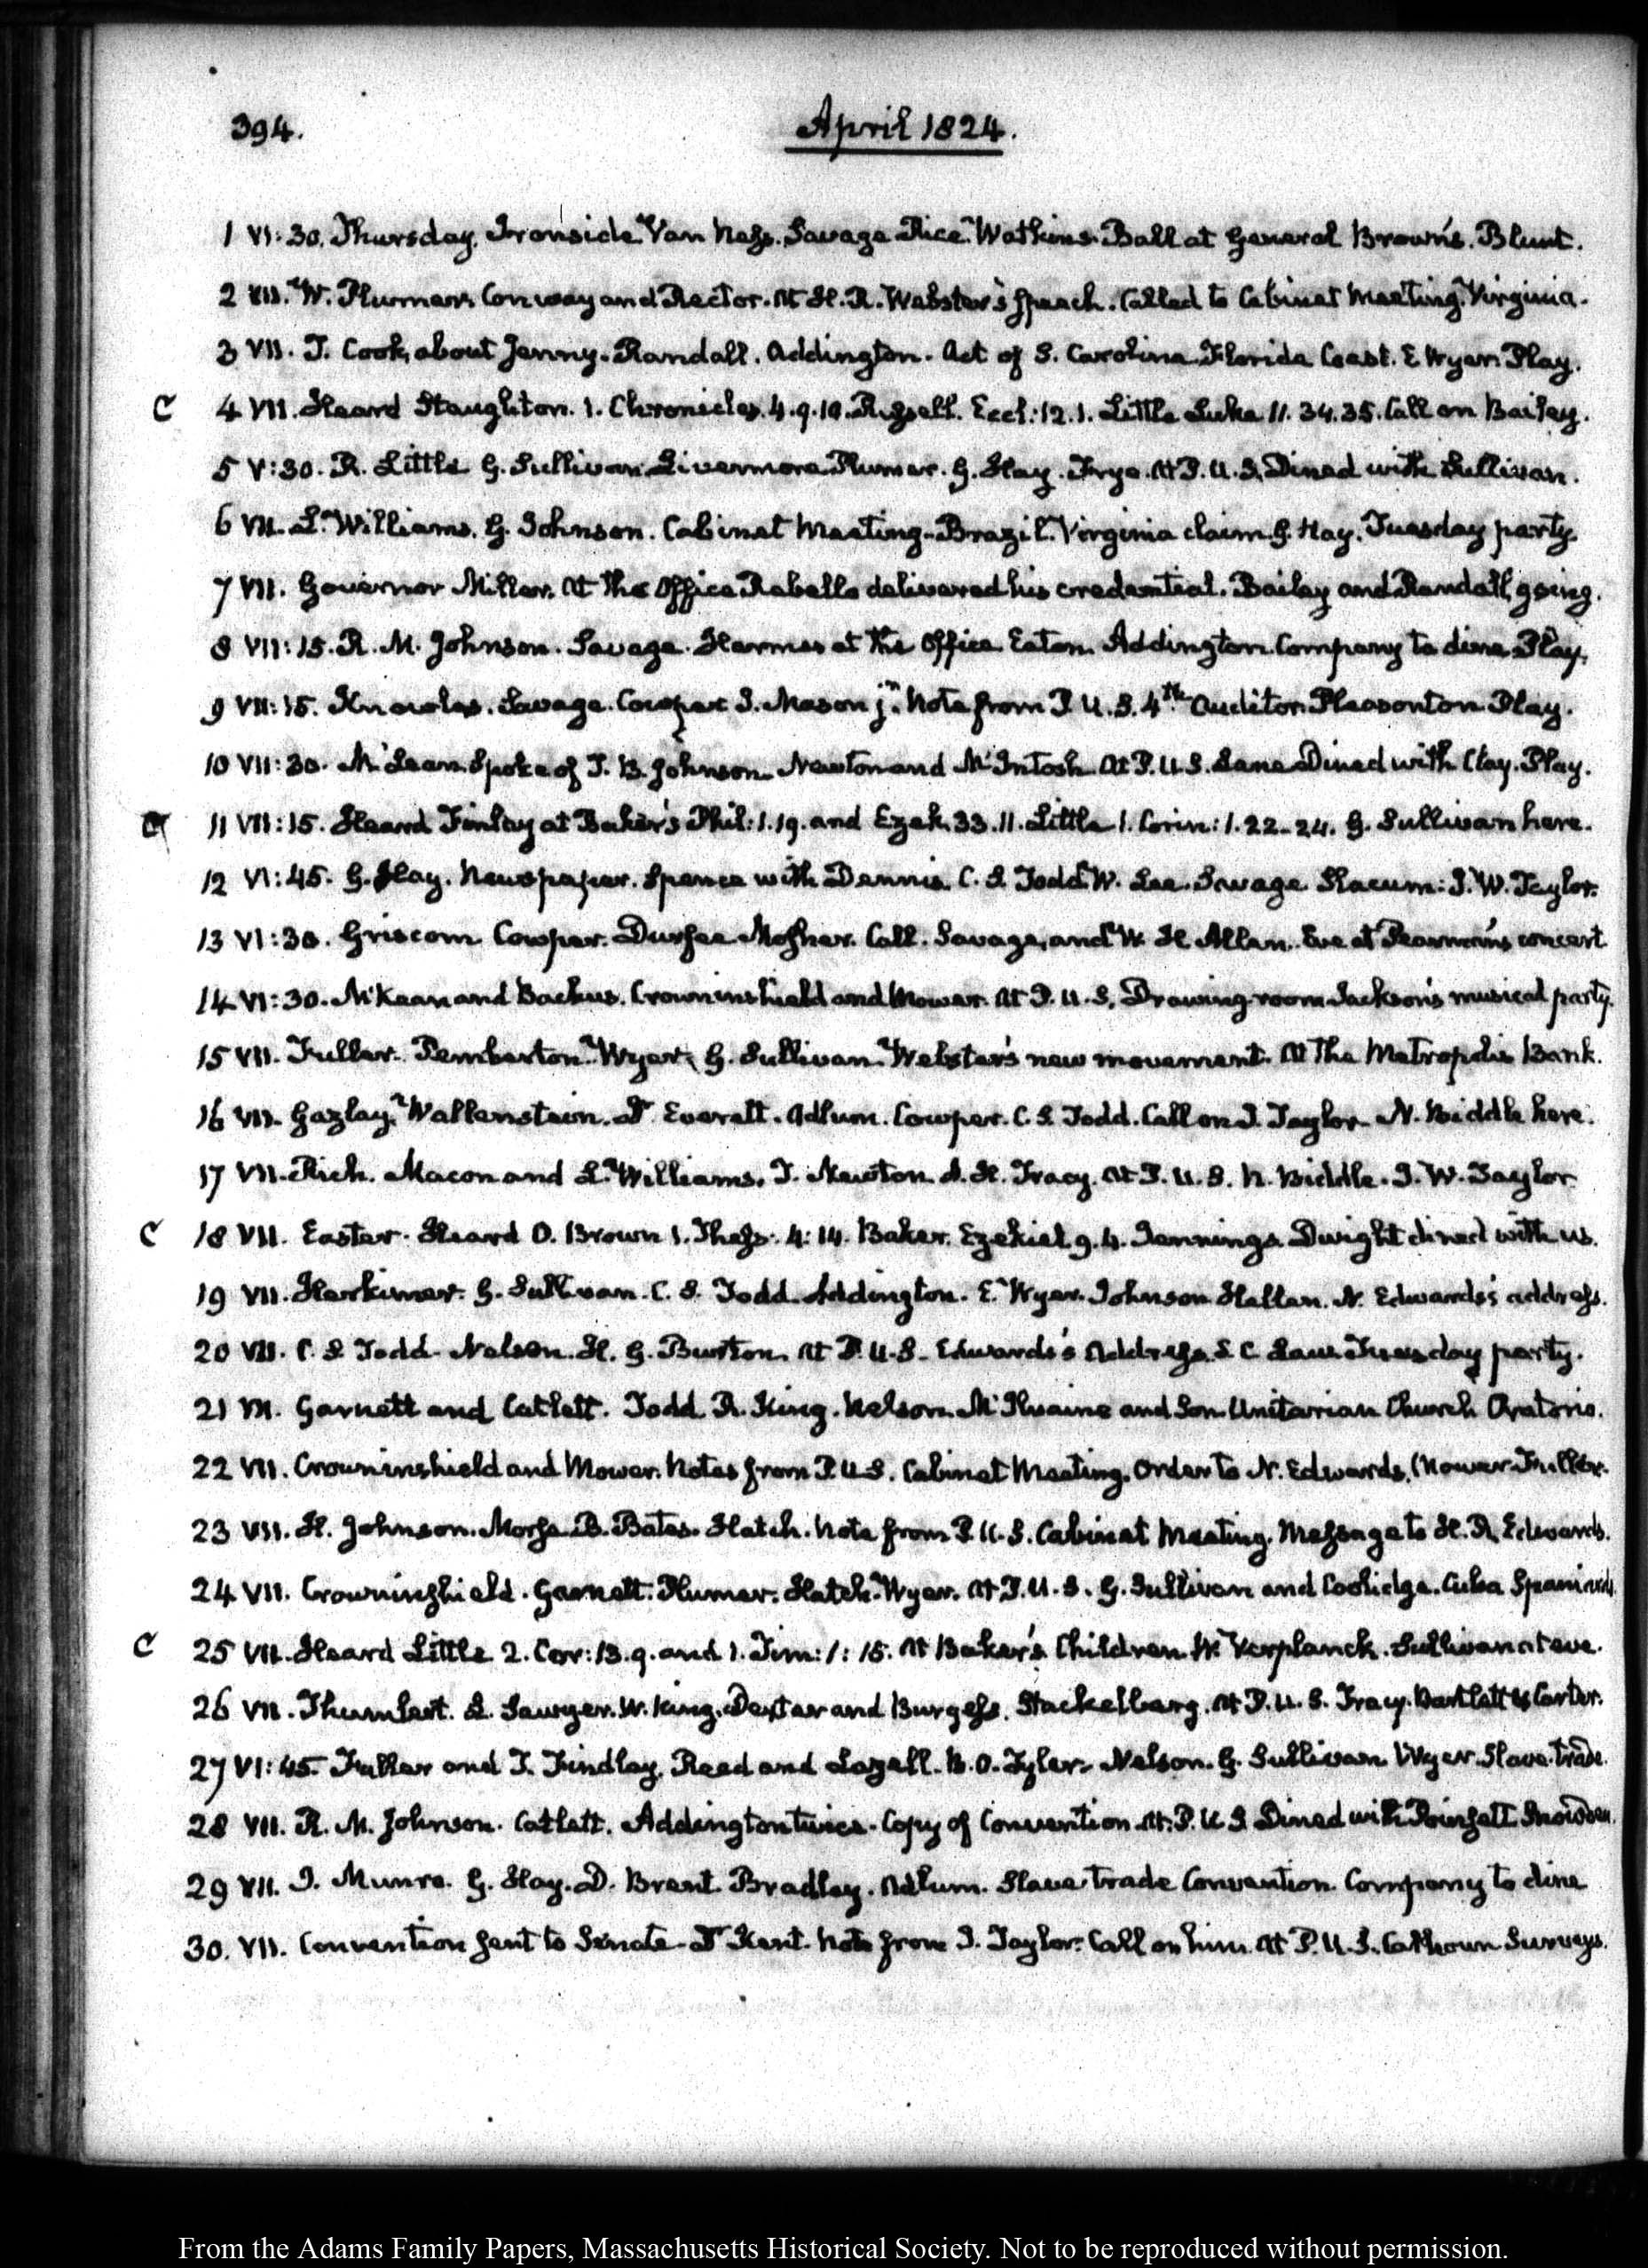 394. April 1824.
1 VI:30. Thursday. Ironside. Van Ness. Savage Rice. Watkins. Ball at General Brown's. Blunt.
2 VII. W. Plumer. Conway and Rector. At H. R. Webster's speech. Called to Cabinet Meeting. Virginia.
3 VII. J. Cook, about Jenny. Randall. Addington. Act of S. Carolina Florida Coast. E Wyer. Play.
C 4 VII. Heard Staughton. 1. Chronicles. 4.9.10. Russell. Eccl:12.1. Little Luke 11. 34.35. Call on Bailey.
5 V:30. R. Little G. Sullivan. Livermore Plumer. G. Hay. Frye. At P. U. S. Dined with Sullivan.
6 VII. L. Williams. G. Johnson. Cabinet Meeting. Brazil. Virginia claim. G. Hay. Tuesday party.
7 VII. Governor Miller. At the Office Rebello delivered his credential. Bailey and Randall, going.
8 VII:15. R. M. Johnson. Savage. Harmes at the Office. Eaton. Addington. Company to dine. Play.
9 VII:15. Knowles. Savage. Cowper J. Mason jr. Note from P. U. S. 4th Auditor. Pleasonton. Play.
10 VII:30. McLean. Spoke of J. B. Johnson. Newton and McIntosh. At P. U. S. Lane. Dined with Clay. Play.
C 11 VII:15. Heard Finlay at Baker's Phil:1.19. and Ezek. 33.11. Little 1. Corin:1.22-24. G. Sullivan here.
12 VI:45. G. Hay. Newspaper. Spence with Dennis. C. S. Todd. W. Lee. Savage. Slacum: J. W. Taylor.
13 VI:30. Griscom Cowper. Durfee. Mosher. Call. Savage, and W. H. Allen. Eve at Pearman's concert.
14 VI:30. McKean and Backus. Crowninshield and Mower. At P. U. S. Drawing-room. Jackson's musical party.
15 VII. Fuller. Pemberton. Wyer. G. Sullivan. Webster's new movement. At the Metropolis Bank.
16 VII. Gazlay. Wallenstein. Dr Everett. Adlum. Cowper. C. S. Todd. Call on J. Taylor. N. Biddle here.
17 VII. Rich. Macon and L. Williams. T. Newton. A. H. Tracy. At P. U. S. N. Biddle. J. W. Taylor
C 18 VII. Easter. Heard O. Brown 1. Thess. 4:14. Baker. Ezekiel 9.4. Jennings. Dwight dined with us.
19 VII. Herkimer. G. Sullivan. C. S. Todd. Addington. E. Wyer. Johnson. Hallen. N. Edwards's address.
20 VII. C. S. Todd. Nelson. H. G. Burton. At P. U. S. Edwards's Address. S C Law. Tuesday party.
21 VI. Garnett and Catlett. Todd. R. King. Nelson. McIlvaine and Son. Unitarian Church Oratorio.
22 VII. Crowninshield and Mower. Notes from P. U. S. Cabinet Meeting. Order to N. Edwards. Mower. Fuller.
23 VII. H. Johnson. Morse. B. Bates. Hatch. Note from P. U. S. Cabinet Meeting. Message to H. R. Edwards.
24 VII. Crowninshield. Garnett. Plumer. Hatch. Wyer. At P. U. S. G. Sullivan and Coolidge. Cuba Spaniards.
C 25 VII. Heard Little 2. Cor:13.9. and 1. Tim:1:15. At Baker's. Children. Verplanck. Sullivan at eve.
26 VII. L. Sawyer. W. King. Dexter and Burgess. Stackelberg. At P. U. S. Tracy. Bartlett & Carter.
27 VI:45. Fuller and J. Findlay. Reed and Lazell. B. O. Tyler. Nelson. G. Sullivan. Wyer. Slave-trade.
28 VII. R. M. Johnson. Catlett. Addington twice. Copy of Convention. At P. U. S. Dined with Poinsett. Snowden.
29 VII. J. Munro. G. Hay. D. Brent. Bradley. Adlum. Slave trade Convention. Company to dine
30. VII. Convention sent to Senate. Dr Kent. Note from J. Taylor. Call on him. At P. U. S. Calhoun Surveys.
From the Adams Family Papers, Massachusetts Historical Society. Not to be reproduced without permission.